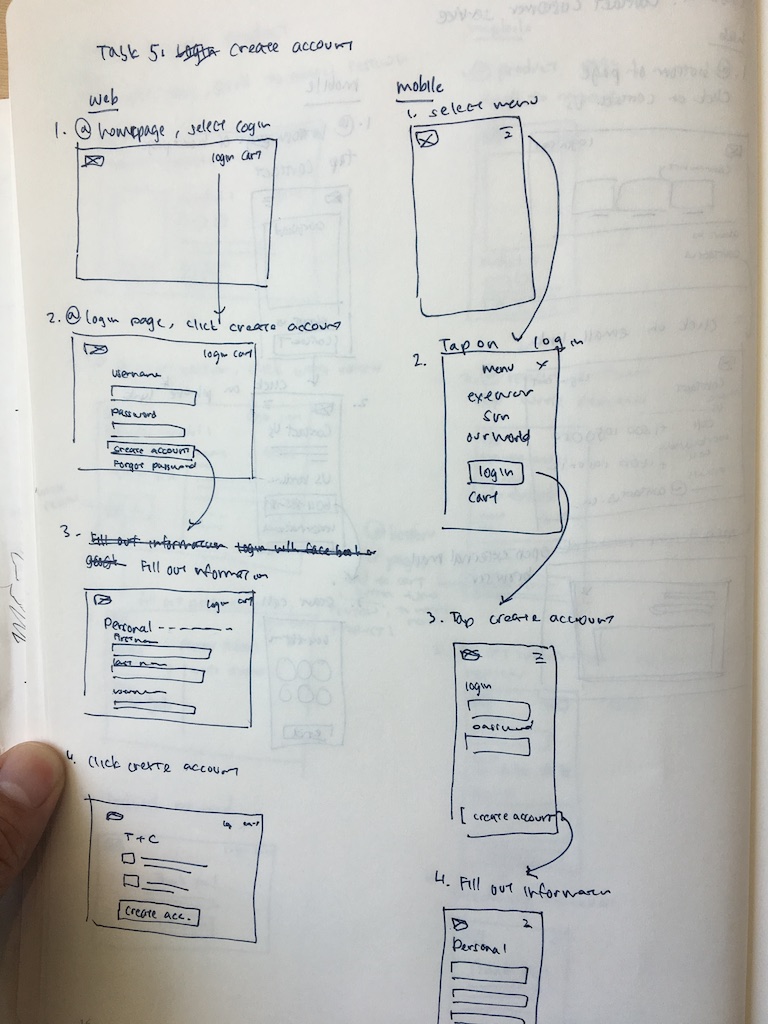 Task 5: Login create account
web
1. @ homepage, select login
login cart
2. @ login page, click create account
login cart
username
password
create account
Forgot password
3. Fill out information Login with facebook or
google Fill out information
login cart
Personal
First name
last name
username
4. Click create account
T + C
create acc.
mobile
1. select menu
2. Tap on login
menu x
sun
our world
login
cart
3. Tap create account
login
password
create account
4. Fill out information
Personal